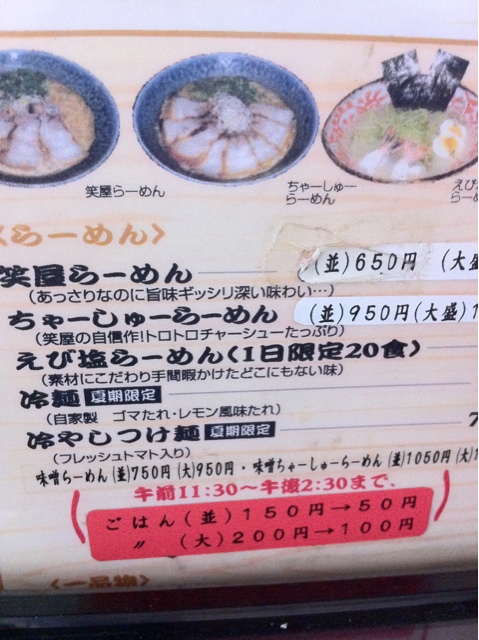 笑屋らーめん
ちゃーしゅー
らーめん
えび
らー
〈らーめん〉
笑屋らーめん (並)650円 (大盛
(あっさりなのに旨味ギッシリ深い味わい…)
ちゃーしゅーらーめん (並)950円(大盛)1
(笑屋の自信作!トロトロチャーシューたっぷり)
えび塩らーめん(1日限定20食)
(素材にこだわり手間暇かけたどこにもない味)
冷麺 夏期限定
(自家製 ゴマたれ・レモン風味たれ)
冷やしつけ麺 夏期限定 7
(フレッシュトマト入り)
味噌らーめん(並)750円(大)950円・味噌ちゃーしゅーらーめん(並)1050円(大)1
午前11:30〜午後2:30まで、
ごはん(並)150円→50円
〃 (大)200円→100円
〈一品物〉